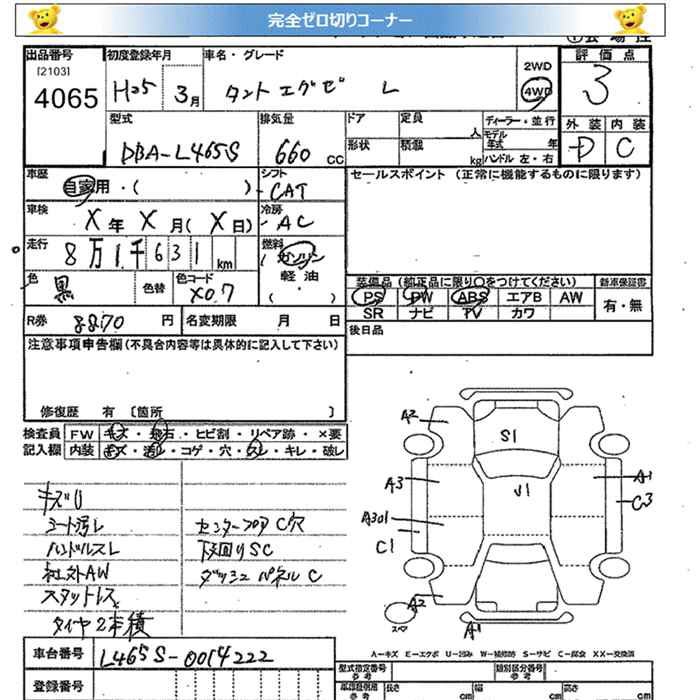 完全ゼロ切りコーナー
出品番号 初度登録年月 車名・グレード 2WD 評価点
[2103] 4065 H25 3月 タント エグゼ L 4WD 3
型式 排気量 ドア 定員 人 ディーラー・並行 外装 内装
モデル年式 年
DBA-L465S 660 CC 形状 積載 kg ハンドル 左・右 D C
車歴 シフト セールスポイント (正常に機能するものに限ります)
自家用・( ) CAT
車検 冷房
X年 X月(X日) AC
走行 燃料
8万1千631 km ガソリン
軽油
( )
色 黒 色替 色コード X07
装備品 (純正品に限り○をつけてください) 新車保証書
PS PW ABS エアB AW 有・無
SR ナビ TV カワ
R券 8870 円 名変期限 月 日 後日品
注意事項申告欄(不具合内容等は具体的に記入して下さい)
修復歴 有 〔箇所 〕
検査員 FW キズ・飛石・ヒビ割・リペア跡・×要
記入欄 内装 キズ・汚レ・コゲ・穴・スレ・キレ・破レ
キズU
シート汚レ
ハンドルスレ
社外AW
スタッドレス
タイヤ2本積
センターフロア C穴
下回りSC
ダッシュパネル C
A2
S1
A3
V1
A1
C3
A301
C1
A2
スペ
A1
A-キズ E-エクボ U-凹み W-補修跡 S-サビ C-腐食 XX-交換済
車台番号 L465S-0014222
登録番号
型式指定番号 参考 類別区分番号 参考
長さ cm 幅 cm 高さ cm